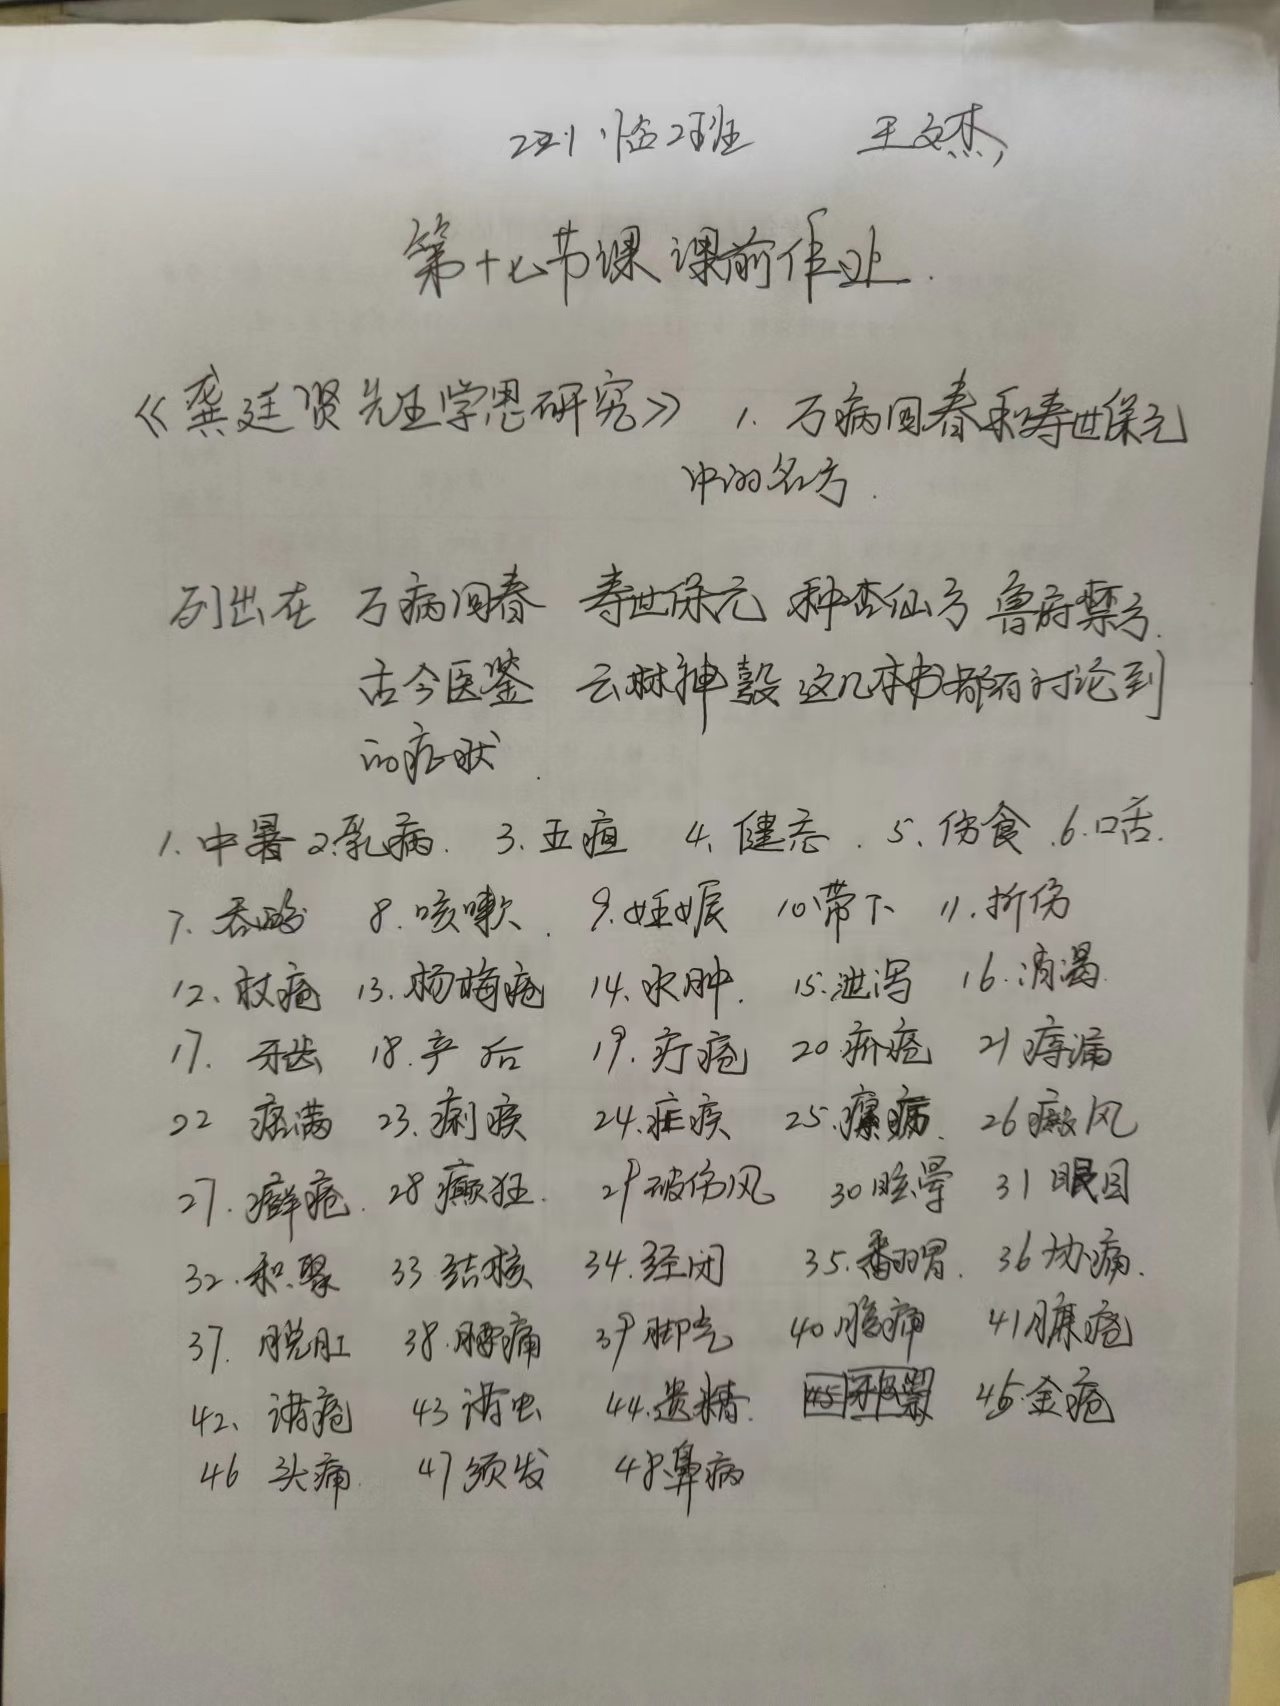 221 临2班 王文杰
第十七节课 课前作业.
《龚廷贤先生学思研究》 1. 万病回春和寿世保元
中的名方.
列出在 万病回春 寿世保元 种杏仙方 鲁府禁方.
古今医鉴 云林神彀 这几本书都有讨论到
的症状.
1. 中暑 2.乳病. 3. 五疸 4. 健忘. 5. 伤食. 6. 口舌.
7. 吞酸 8. 咳嗽. 9. 妊娠 10.带下 11. 折伤
12. 杖疮 13. 杨梅疮 14. 水肿. 15. 泄泻 16. 消渴.
17. 牙齿 18. 产后 19. 疔疮 20. 疥疮 21 痔漏
22 痞满 23. 痢疾 24. 疟疾 25. 瘰疬. 26 癜风
27. 癣疮. 28 癫狂. 29 破伤风 30 眩晕 31 眼目
32. 积聚 33. 结核 34. 经闭 35. 番胃. 36 胁痛.
37. 脱肛 38. 腰痛 39 脚气 40 腹痛 41 臁疮
42. 诸疮 43 诸虫 44. 遗精. 45 金疮
46 头痛. 47 须发 48. 鼻病